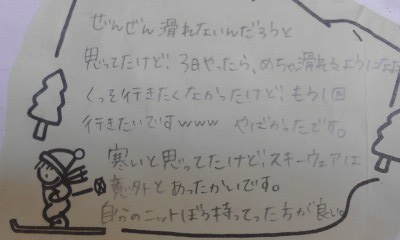 ぜんぜん滑れないんだろうと
思ってたけど!3日やったら、めちゃ滑れるようになった
くっそ行きたくなかったけど!もう1回
行きたいですwww やばかったです。
寒いと思ってたけど!スキーウェアは
意外とあったかいです。
自分のニットぼう持ってった方が良い。